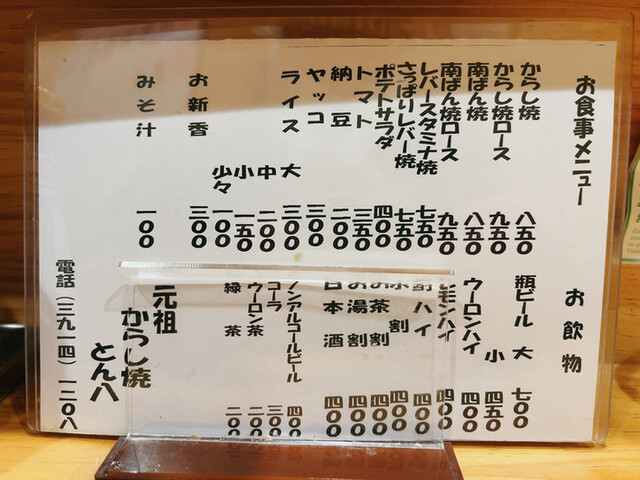 お食事メニュー
からし焼 八五〇
からし焼ロース 九五〇
南ばん焼 八五〇
南ばん焼ロース 九五〇
レバースタミナ焼 七五〇
さっぱりレバー焼 七五〇
ポテトサラダ 四〇〇
トマト 三五〇
納豆 二〇〇
ヤッコ 三〇〇
ライス 大 三〇〇
中 二〇〇
小 一五〇
少々 一〇〇
お新香 三〇〇
みそ汁 一〇〇
お飲物
瓶ビール 大 七〇〇
小 四五〇
ウーロンハイ 四〇〇
レモンハイ 四〇〇
ハイ 四〇〇
水割 四〇〇
お茶割 四〇〇
お湯割 四〇〇
日本酒 四〇〇
ノンアルコールビール 四〇〇
コーラ 三〇〇
ウーロン茶 二〇〇
緑茶 二〇〇
元祖
からし焼
とん八
電話(三九一四)一二〇八